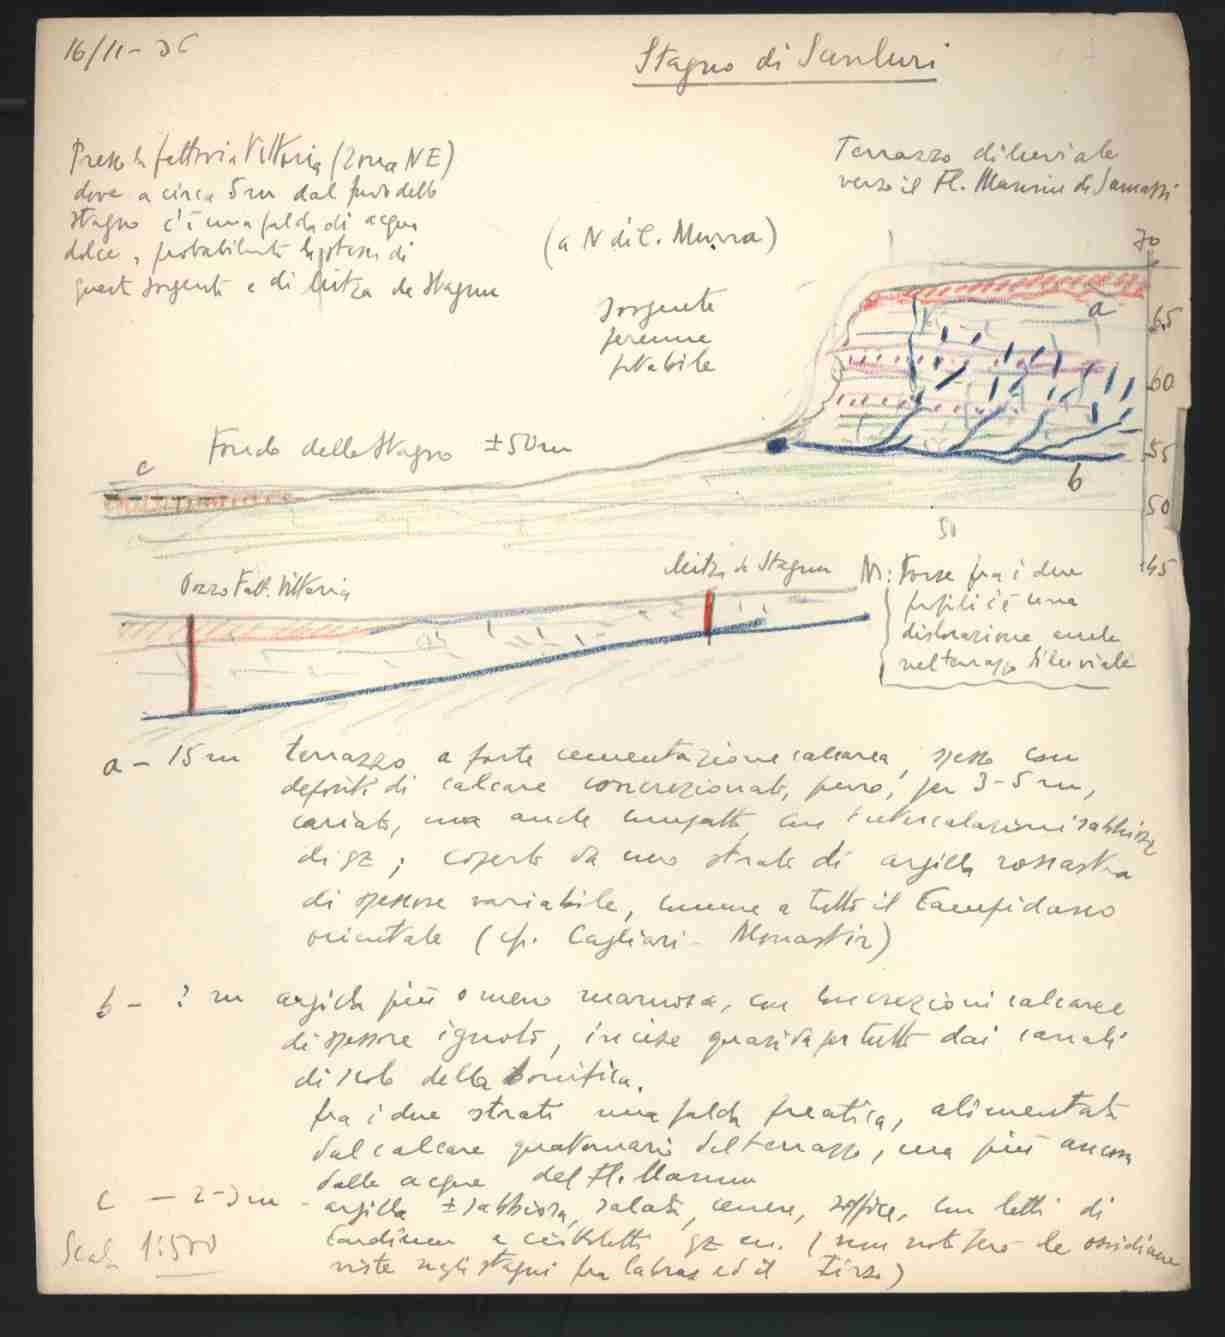 16/11-36
Stagno di Sanluri
Presso la fattoria Vittoria (Zona NE)
dove a circa 5m dal fondo dello
stagno c'è una falda di acqua
dolce, probabilmente di
queste sorgenti e di Mitza de Stagnu
(a N di C. Murra)
Terrazzo diluviale
verso il Fl. Mannu di Samassi
sorgente
perenne
potabile
70
65
60
55
50
45
a
b
c
Fondo dello Stagno ±50m
50
Pozzo Fatt. Vittoria
Mitza de Stagnu
Forse fra i due
profili c'è una
dislocazione anche
nel terrazzo diluviale
a - 15 m terrazzo a forte cementazione calcarea, spesso con
depositi di calcare concrezionato, puro, per 3-5 m,
cariato, ma anche compatto, con intercalazioni sabbiose
di qz; coperto da uno strato di argilla rossastra
di spessore variabile, comune a tutto il Campidano
orientale (cfr. Cagliari - Monastir)
b - ? m argilla più o meno marnosa, con concrezioni calcaree
di spessore ignoto, incise quasi da per tutto dai canali
di scolo della bonifica.
fra i due strati una falda freatica, alimentata
dal calcare quaternario del terrazzo, ma più ancora
dalle acque del Fl. Mannu
c - 2-3 m - argilla ± sabbiosa, salata, cenere, soffice, con letti di
Cardium e ciottoletti qz (non noto però le ossidiane
viste negli stagni fra Cabras ed il Tirso)
Scala 1:500